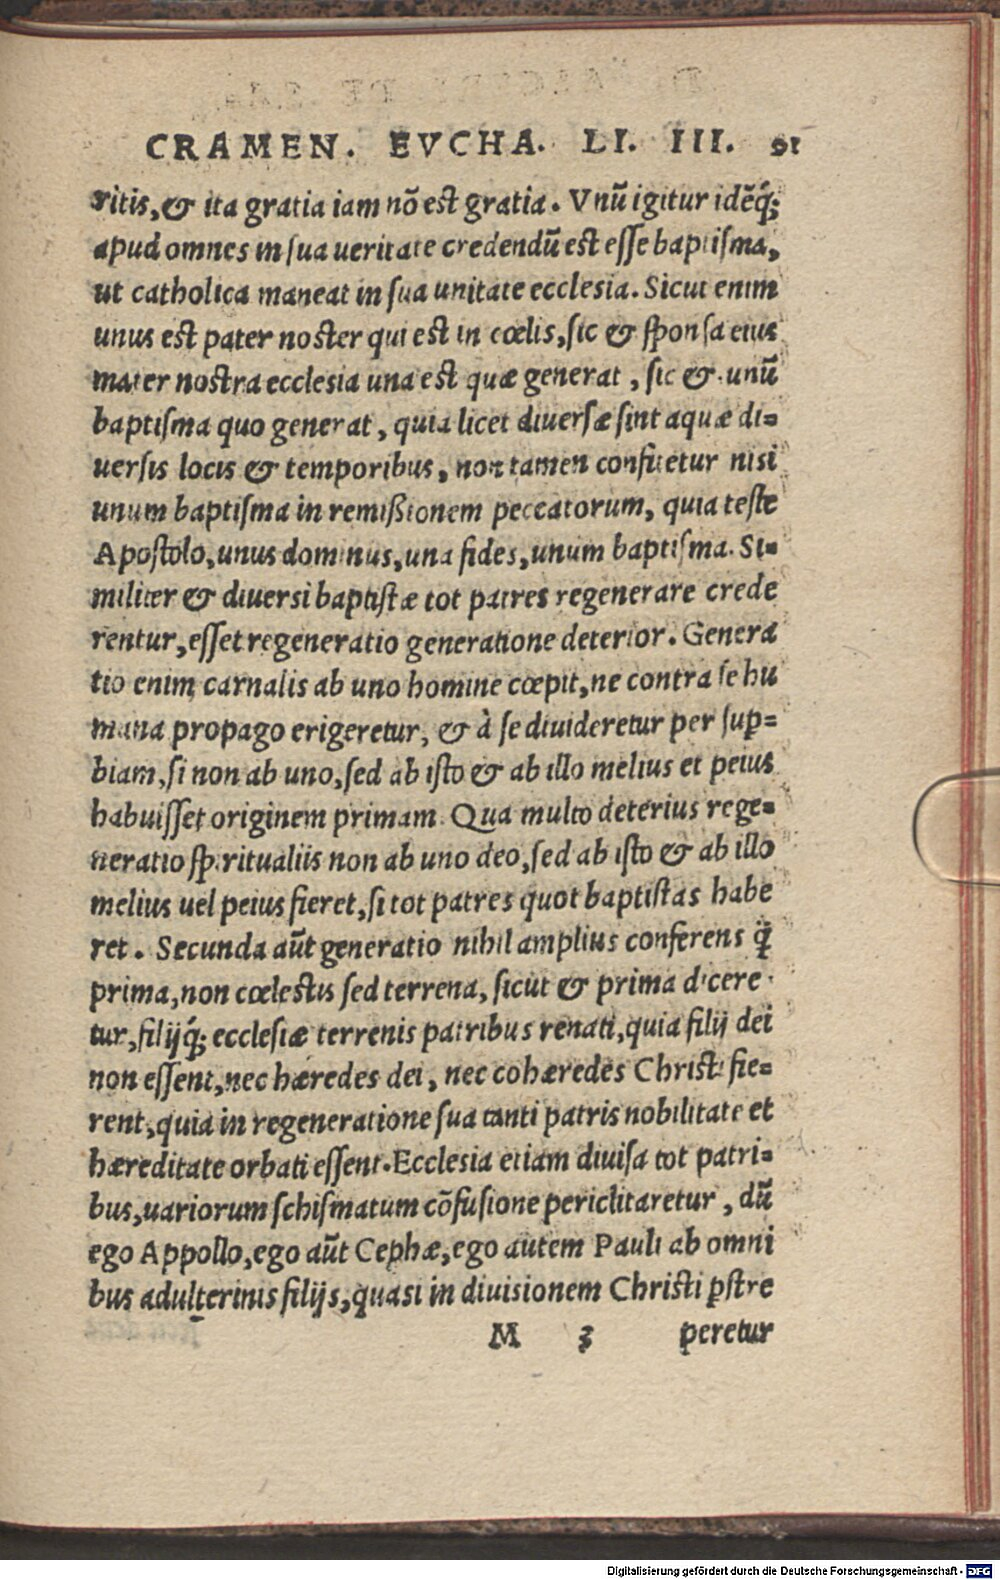 CRAMEN. EVCHA. LI. III. 91
ritis, & ita gratia iam nō est gratia. Vnũ igitur idẽq́;
apud omnes in sua ueritate credendũ est esse baptisma,
ut catholica maneat in sua unitate ecclesia. Sicut enim
unus est pater noster qui est in cœlis, sic & sponsa eius
mater nostra ecclesia una est quæ generat, sic & unũ
baptisma quo generat, quia licet diuersæ sint aquæ di=
uersis locis & temporibus, non tamen confitetur nisi
unum baptisma in remißionem peccatorum, quia teste
Apostolo, unus dominus, una fides, unum baptisma. Si=
militer & diuersi baptistæ tot patres regenerare crede
rentur, esset regeneratio generatione deterior. Genera
tio enim carnalis ab uno homine cœpit, ne contra se hu
mana propago erigeretur, & à se diuideretur per sup=
biam, si non ab uno, sed ab isto & ab illo melius et peius
habuisset originem primam. Qua multo deterius rege=
neratio spiritualiis non ab uno deo, sed ab isto & ab illo
melius uel peius fieret, si tot patres quot baptistas habe
ret. Secunda aũt generatio nihil amplius conferens q̃
prima, non cœlestis sed terrena, sicut & prima dicere
tur, filijq́; ecclesiæ terrenis patribus renati, quia filij dei
non essent, nec hæredes dei, nec cohæredes Christi fie=
rent, quia in regeneratione sua tanti patris nobilitate et
hæreditate orbati essent. Ecclesia etiam diuisa tot patri=
bus, uariorum schismatum cõfusione periclitaretur, dũ
ego Appollo, ego aũt Cephæ, ego autem Pauli ab omni
bus adulterinis filijs, quasi in diuisionem Christi ꝑstre
M 3 peretur
Digitalisierung gefördert durch die Deutsche Forschungsgemeinschaft - DFG